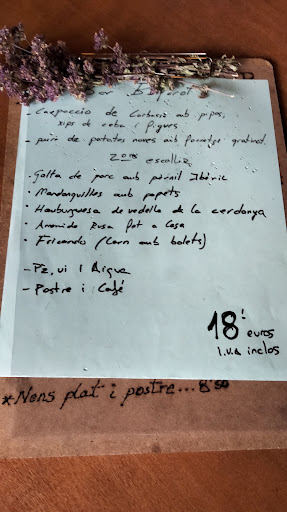 - Carpaccio de Carbassó amb pipes,
xips de ceba i figues
- puré de patates noves amb formatge gratinat.
2ons escollir
- Galta de porc amb pernil Ibèric
• Mandonguilles amb popets
• Hamburguesa de vedella de la cerdanya
• Amanida Rusa Fet a Casa
• Fricandó (Carn amb bolets)
- Pa, vi i Aigua
- Postre i Café
18'
euros
I.V.A inclos
*Nens plat i postre... 8'50